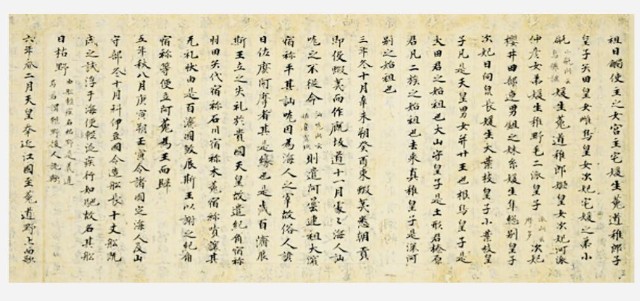 祖日觸使主之女宮主宅媛生菟道稚郎子
皇子矢田皇女雌鳥皇女次妃宅媛之弟小
媛生菟道稚郎姬皇女次妃河派
仲彥女弟媛生稚野毛二派皇子次妃
櫻井田部連男鉏之妹糸媛生隼總別皇子
次妃日向泉長媛生大葉枝皇子小葉枝皇
子凡是天皇男女并廿王也根鳥皇子是
大田君之始祖也大山守皇子是土形君榛原
君凡二族之始祖也去來真稚皇子是深河
別之始祖也
三年冬十月辛未朔癸酉東蝦夷悉朝貢
即役蝦夷而作厩坂道十一月處々海人訕
哤之不從命則遣阿曇連祖大濱
宿祢平其訕哤因為海人之宰故俗人諺
曰佐麼阿摩者其是緣也是歲百濟辰
斯王立之失礼於貴國天皇故遣紀角宿祢
羽田矢代宿祢石川宿祢木菟宿祢嘖讓其
无礼狀由是百濟國殺辰斯王以謝之紀角
宿祢等便立阿為王而歸
五年秋八月庚寅朔壬寅令諸國定海人及山
守部冬十月科伊豆國令造船長十丈船既
成之試浮于海便輕泛疾行如馳故名其船
曰枯野
六年春二月天皇幸近江國至菟道野上而歌